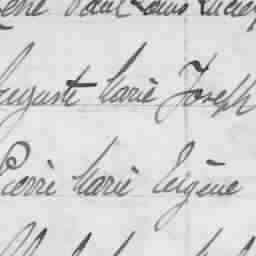 René Paul Louis Lucien
Auguste Marie Joseph
Pierre Marie Eugène